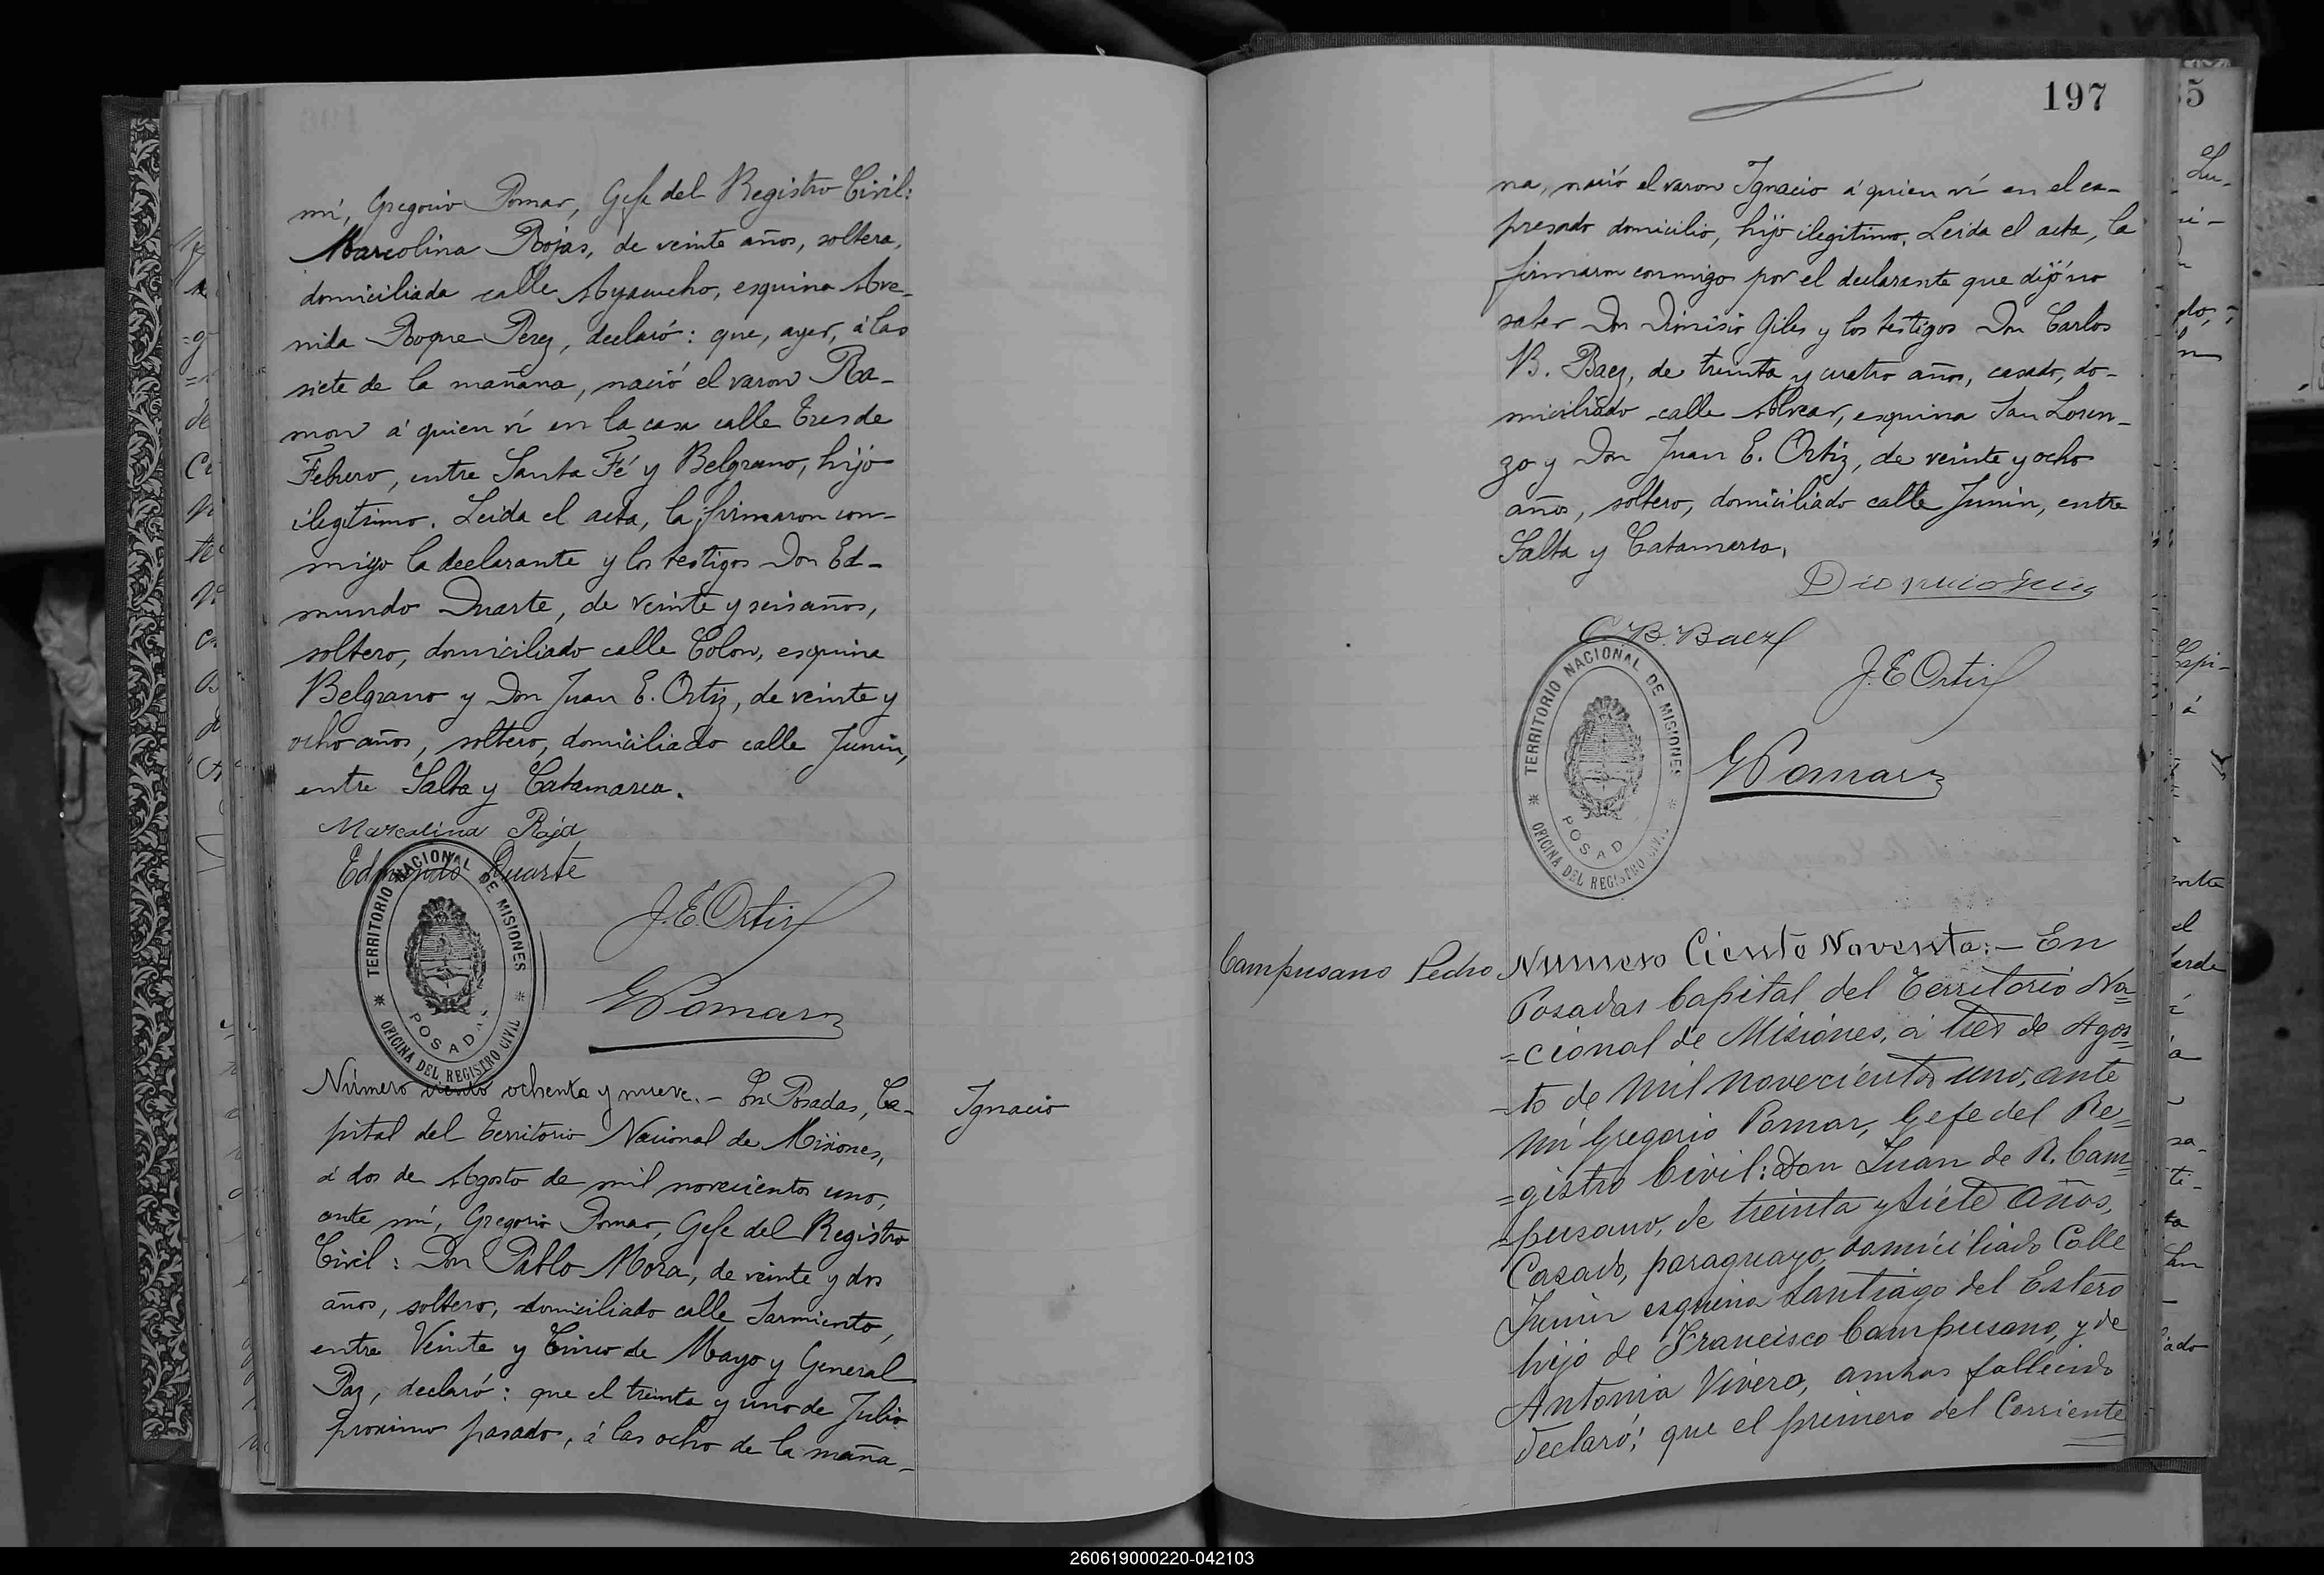 mí, Gregorio Pomar, Gefe del Registro Civil:
Marcolina Rojas, de veinte años, soltera,
domiciliada calle Ayacucho, esquina Ave-
nida Roque Perez, declaró: que, ayer, á las
siete de la mañana, nació el varon Ra-
mon á quien ví en la casa calle Tres de
Febrero, entre Santa Fé y Belgrano, hijo
ilegitimo. Leida el acta, la firmaron con-
migo la declarante y los testigos Don Ed-
mundo Duarte, de veinte y seis años,
soltero, domiciliado calle Colon, esquina
Belgrano y Don Juan E. Ortiz, de veinte y
ocho años, soltero, domiciliado calle Junin,
entre Salta y Catamarca.
Marcalina Roja
Edmundo Duarte
J. E. Ortiz
G Pomar
TERRITORIO NACIONAL DE MISIONES
POSADAS
OFICINA DEL REGISTRO CIVIL
Número ciento ochenta y nueve. - En Posadas, Ca-
Ignacio
pital del Territorio Nacional de Misiones,
á dos de Agosto de mil novecientos uno,
ante mí, Gregorio Pomar, Gefe del Registro
Civil: Don Pablo Mora, de veinte y dos
años, soltero, domiciliado calle Sarmiento,
entre Veinte y Cinco de Mayo y General
Paz, declaró: que el treinta y uno de Julio
proximo pasado, á las ocho de la maña-
197
na, nació el varon Ignacio á quien ví en el ex-
presado domicilio, hijo ilegitimo. Leida el acta, la
firmaron conmigo por el declarante que dijó no
saber Don Dionisio Giles y los testigos Don Carlos
B. Baez, de treinta y cuatro años, casado, do-
miciliado calle Alvear, esquina San Loren-
zo y Don Juan E. Ortiz, de veinte y ocho
años, soltero, domiciliado calle Junin, entre
Salta y Catamarca.
C. B. Baez
J. E. Ortiz
G Pomar
TERRITORIO NACIONAL DE MISIONES
POSAD
OFICINA DEL REGISTRO CIVIL
Campusano Pedro
Numero Ciento Noventa: - En
Posadas Capital del Territorio Na=
=cional de Misiónes, á tres de Agos=
-to de mil novecientos uno, ante
mí Gregorio Pomar, Gefe del Re=
=gistro Civil: Don Juan de R. Cam=
=pusano, de treinta y siete años,
Casado, paraguayo, domiciliado Calle
Junin esquina Santiago del Estero
hijo de Francisco Campusano, y de
Antonia Vivero, ambos fallecido
declaró: que el primero del Corriente